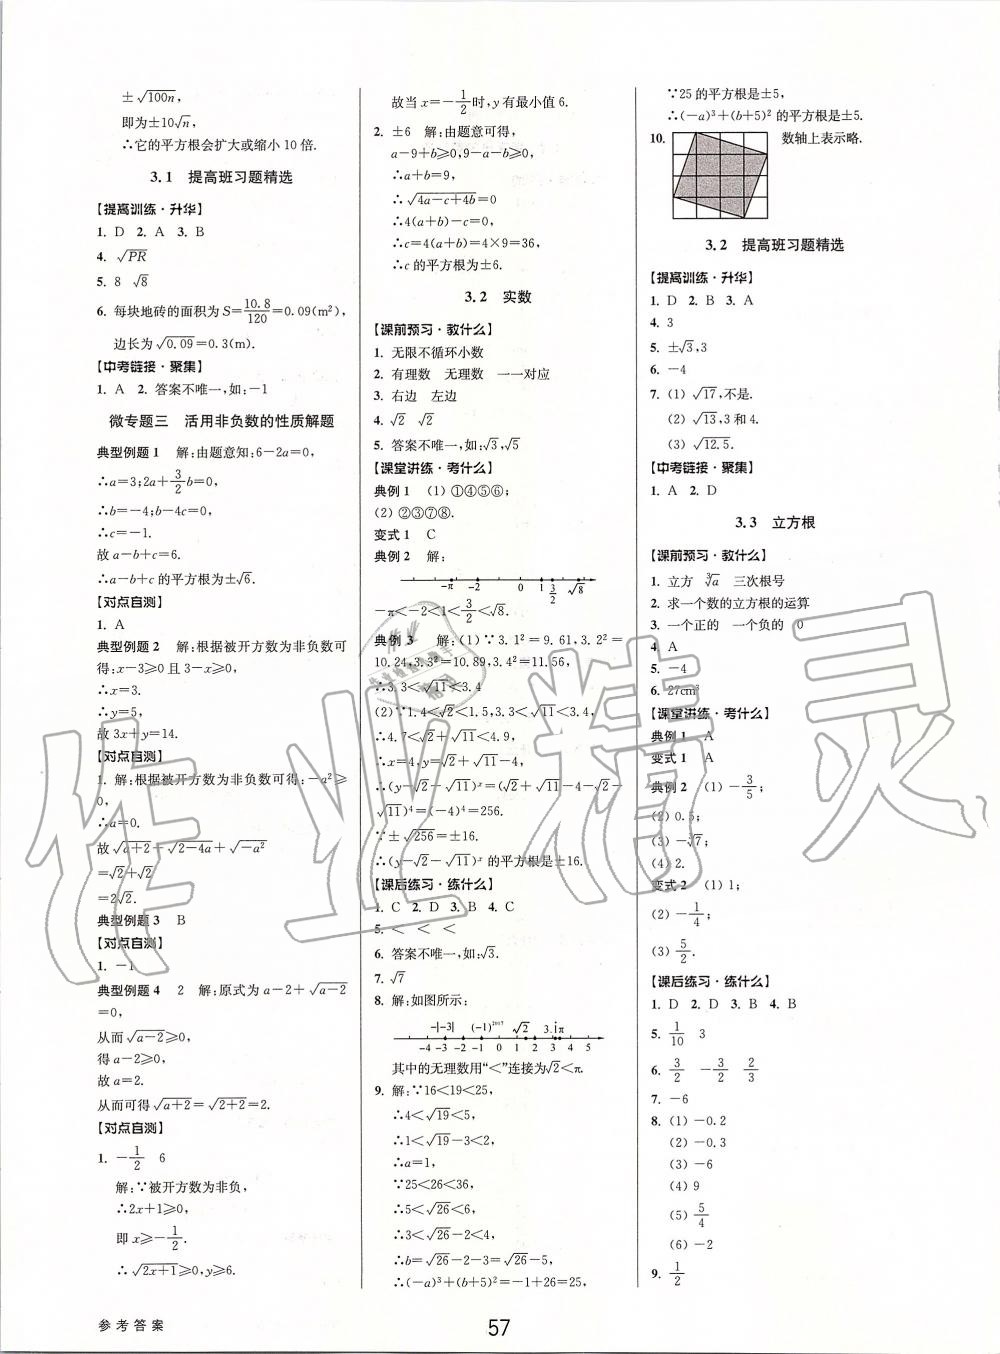 ±√100n,
即为±10√n,
∴它的平方根会扩大或缩小 10 倍.
3.1 提高班习题精选
【提高训练·升华】
1. D 2. A 3. B
4. √PR
5. 8 √8
6. 每块地砖的面积为 S=10.8/120=0.09(m²),
边长为√0.09=0.3(m).
【中考链接·聚集】
1. A 2. 答案不唯一,如:-1
微专题三 活用非负数的性质解题
典型例题 1 解:由题意知:6-2a=0,
∴a=3;2a+3/2b=0,
∴b=-4;b-4c=0,
∴c=-1.
故 a-b+c=6.
∴a-b+c 的平方根为±√6.
【对点自测】
1. A
典型例题 2 解:根据被开方数为非负数可
得:x-3≥0 且 3-x≥0,
∴x=3.
∴y=5,
故 3x+y=14.
【对点自测】
1. 解:根据被开方数为非负数可得:-a²≥
0,
∴a=0.
故√a+2-√2-4a+√-a²
=√2+√2
=2√2.
典型例题 3 B
【对点自测】
1. -1
典型例题 4 2 解:原式为 a-2+√a-2
=0,
从而√a-2≥0,
得 a-2≥0,
故 a=2.
从而可得√a+2=√2+2=2.
【对点自测】
1. -1/2 6
解:∵被开方数为非负,
∴2x+1≥0,
即 x≥-1/2.
∴√2x+1≥0,y≥6.
故当 x=-1/2时,y 有最小值 6.
2. ±6 解:由题意可得,
a-9+b≥0,9-a-b≥0,
∴a+b=9,
∴√4a-c+4b=0
∴4(a+b)-c=0,
∴c=4(a+b)=4×9=36,
∴c 的平方根为±6.
3.2 实数
【课前预习·教什么】
1. 无限不循环小数
2. 有理数 无理数 一一对应
3. 右边 左边
4. √2 √2
5. 答案不唯一,如:√3,√5
【课堂讲练·考什么】
典例 1 (1)①④⑤⑥;
(2)②③⑦⑧.
变式 1 C
典例 2 解:
-π -2 0 1 3/2 √8
-π<-2<1<3/2<√8.
典例 3 解:(1)∵3.1²=9.61,3.2²=
10.24,3.3²=10.89,3.4²=11.56,
∴3.3<√11<3.4
(2)∵1.4<√2<1.5,3.3<√11<3.4,
∴4.7<√2+√11<4.9,
∴x=4,y=√2+√11-4,
∴(y-√2-√11)ˣ=(√2+√11-4-√2-
√11)⁴=(-4)⁴=256.
∵±√256=±16.
∴(y-√2-√11)ˣ的平方根是±16.
【课后练习·练什么】
1. C 2. D 3. B 4. C
5. < < <
6. 答案不唯一,如:√3.
7. √7
8. 解:如图所示:
-|-3| (-1)²⁰¹⁷ √2 3.i π
-4 -3 -2 -1 0 1 2 3 4 5
其中的无理数用“<”连接为√2<π.
9. 解:∵16<19<25,
∴4<√19<5,
∴1<√19-3<2,
∴a=1,
∵25<26<36,
∴5<√26<6,
∴3<√26-2<4,
∴b=√26-2-3=√26-5,
∴(-a)³+(b+5)²=-1+26=25,
∵25 的平方根是±5,
∴(-a)³+(b+5)² 的平方根是±5.
10. 数轴上表示略.
3.2 提高班习题精选
【提高训练·升华】
1. D 2. B 3. A
4. 3
5. ±√3,3
6. -4
7. (1)√17,不是.
(2)√13,3 和 4.
(3)√12.5.
【中考链接·聚集】
1. A 2. D
3.3 立方根
【课前预习·教什么】
1. 立方 ∛a 三次根号
2. 求一个数的立方根的运算
3. 一个正的 一个负的 0
4. A
5. -4
6. 27cm³
【课堂讲练·考什么】
典例 1 A
变式 1 A
典例 2 (1)-3/5;
(2)0.5;
(3)-√7;
(4)2.
变式 2 (1)1;
(2)-1/4;
(3)5/2.
【课后练习·练什么】
1. D 2. D 3. B 4. B
5. 1/10 3
6. 3/2 -3/2 2/3
7. -6
8. (1)-0.2
(2)-0.3
(3)-6
(4)9
(5)5/4
(6)-2
9. 1/2
参考答案
57
作业精灵